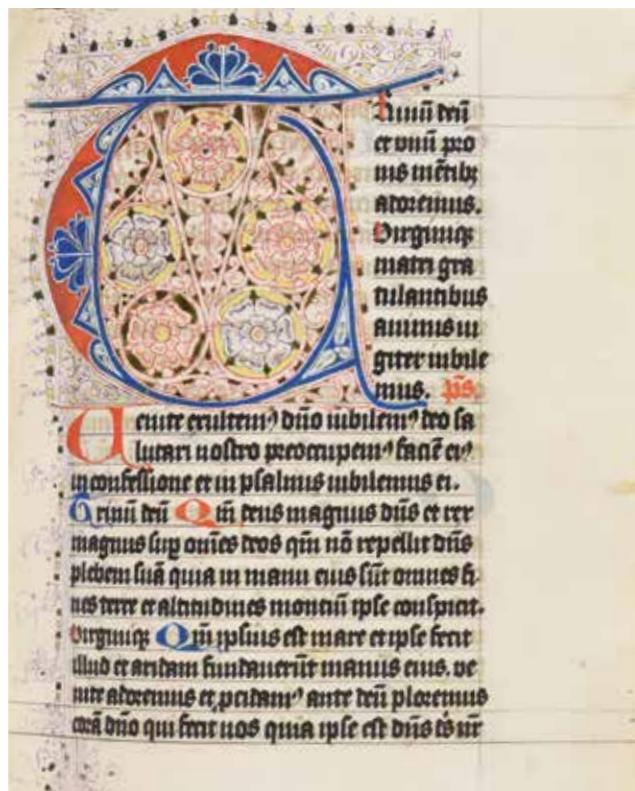 Trinū deū
et unū pro
nis mētibꝫ
adoremus.
Virginiqꝫ
matri gra
tulantibus
animis iu
giter iubile
mus. p̄s
Uenite exultemꝰ dn̄o iubilemꝰ deo sa
lutari nostro preoccupemꝰ faciē eiꝰ
in confessione et in psalmis iubilemus ei.
Trinū deū Qm̄ deus magnus dn̄s et rex
magnus sup̄ om̄es deos qm̄ nō repellit dn̄s
plebem suā quia in manu eius sūt omnes fi
nes terre et altitudines montiū ipse conspicit.
Virginiqꝫ Qm̄ ipsius est mare et ipse fecit
illud et aridam fundauerūt manus eius. ve
nite adoremus et ꝓcidamꝰ ante deū ploremus
corā dn̄o qui fecit nos quia ipse est dn̄s ds̄ nr̄